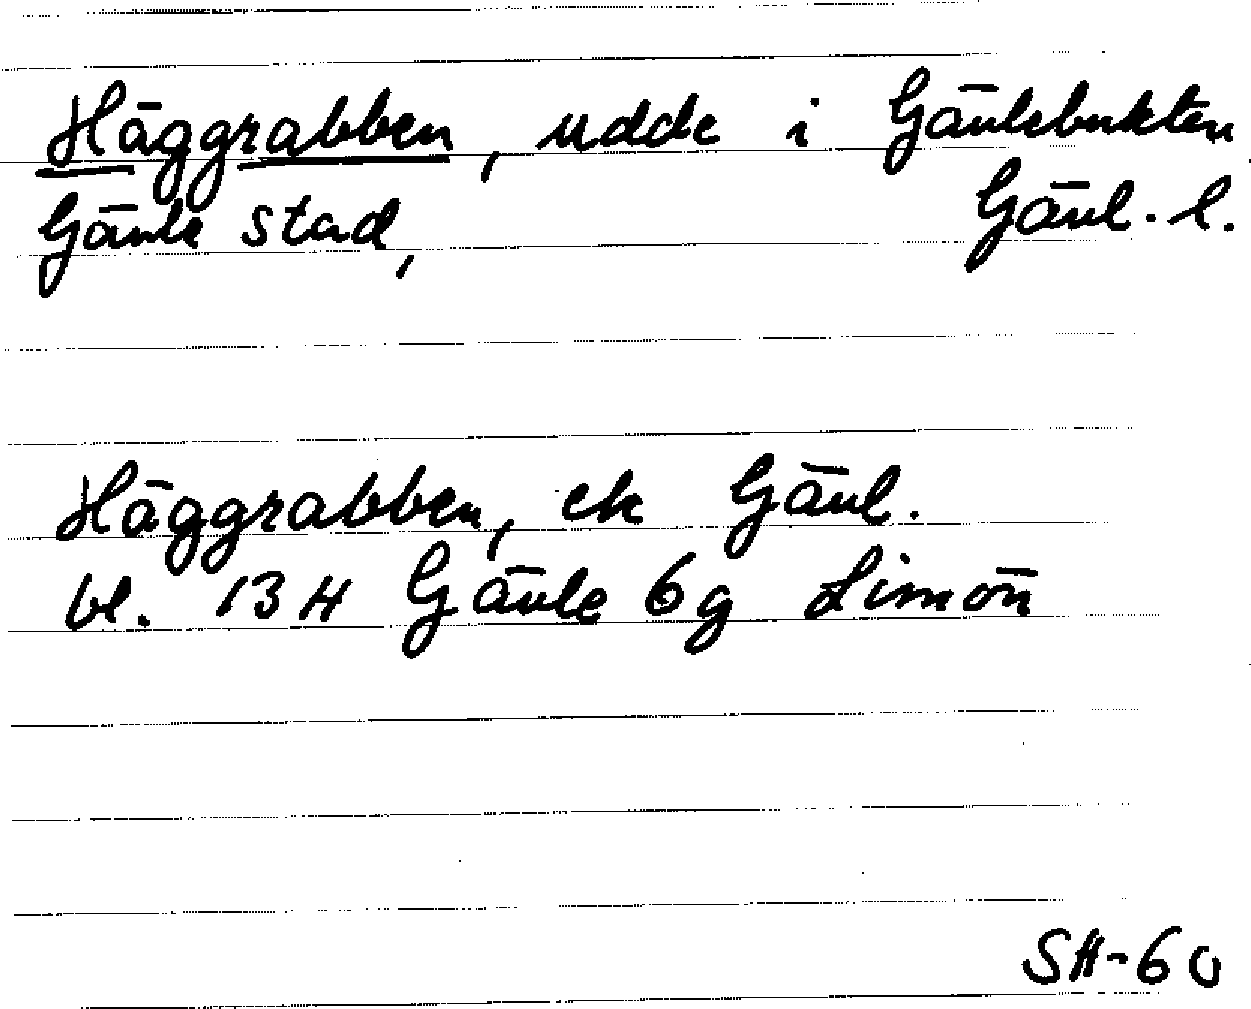 Häggrabben, udde i Gävlebukten
Gävle stad, Gävl. l.
Häggrabben, ek Gävl.
bl. 13 H Gävle 6g Limön
SH-60